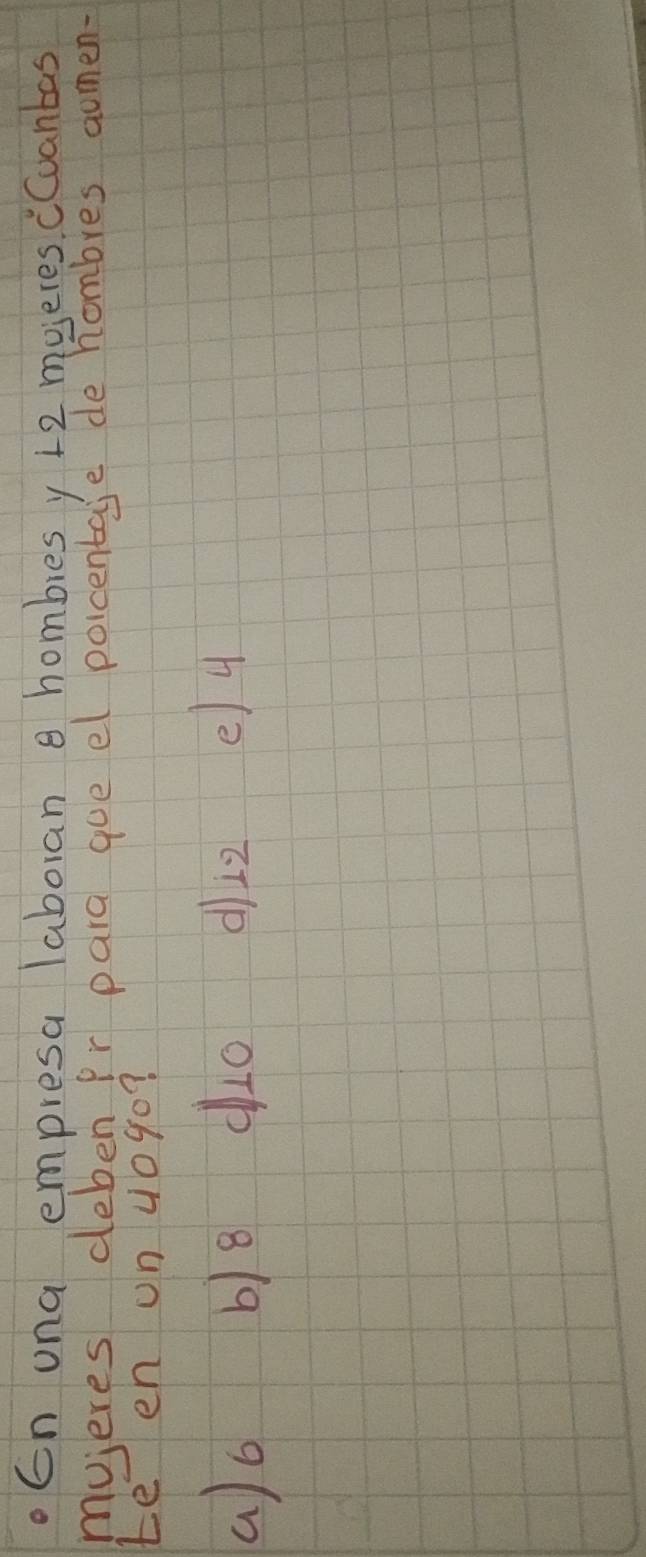 • En una empresa laboran 8 hombres y 12 mujeres. ¿Cuantas
mujeres deben ir para que el porcentaje de hombres aumen-
te en un 40%?
a) 6 b) 8 c) 10 d) 12 e) 4